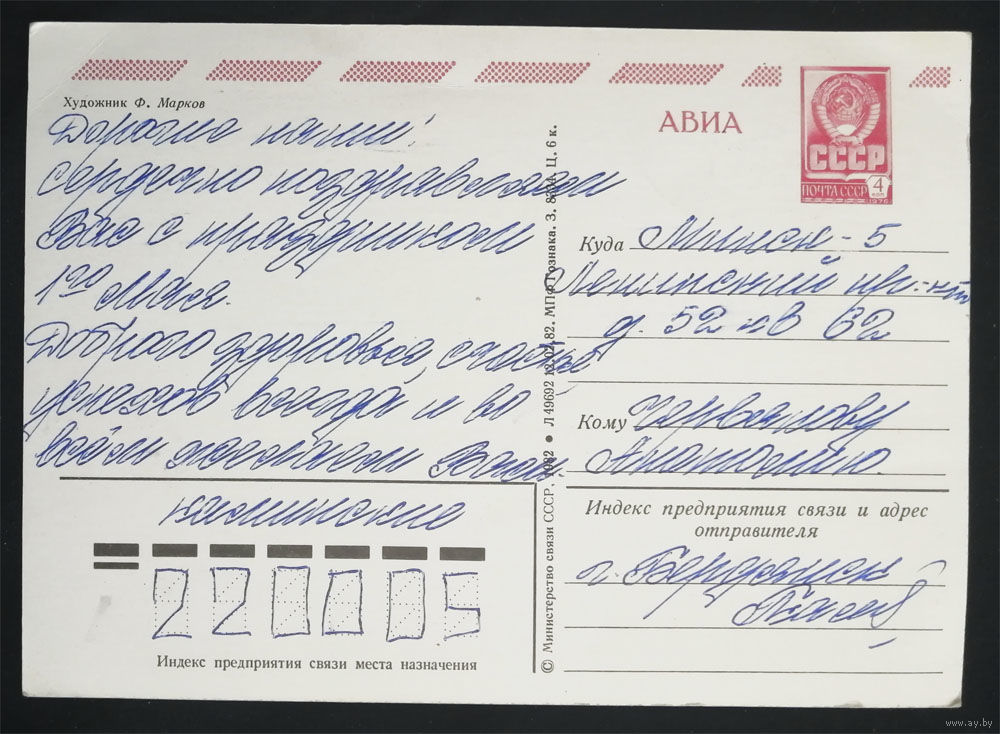 Художник Ф. Марков
АВИА
СССР
ПОЧТА СССР
4
коп
1976
Дорогие наши!
Сердечно поздравляем
Вас с праздником
1го Мая.
Доброго здоровья, счастья
успехов всегда и во
всём желаем Вам.
Калинские
220005
Индекс предприятия связи места назначения
© Министерство связи СССР, 1982 ● Л 49692 12.02.82. МПФ Гознака. З. Ц. 6 к.
Куда Минск-5
Ленинский пр-кт
д. 52 кв 62
Кому
Анатолию.
Индекс предприятия связи и адрес
отправителя
г. Бердянск
www.ay.by